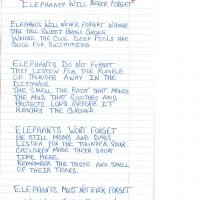 ELEPHANTS WILL NEVER FORGET
ELEPHANTS WILL NEVER FORGET WHERE
THE TALL SWEET GRASS GROWS
WHERE THE COOL DEEP POOLS ARE
GOOD FOR SWIMMING.
ELEPHANTS DO NOT FORGET
THEY LISTEN FOR THE RUMBLE
OF THUNDER AWAY IN THE
DISTANCE.
THE SMELL THE RAIN THAT MAKES
THE MUD THAT SOOTHES AND
PROTECTS LONG BEFORE IT
REACHES THE GROUND.
ELEPHANTS WON'T FORGET
BE STILL MOMS AND DADS
LISTEN FOR THE THUNDER YOUR
CHILDREN MADE THEIR SHORT
TIME HERE.
REMEMBER THE TASTE AND SMELL
OF THEIR TEARS.
ELEPHANTS MUST NOT EVER FORGET